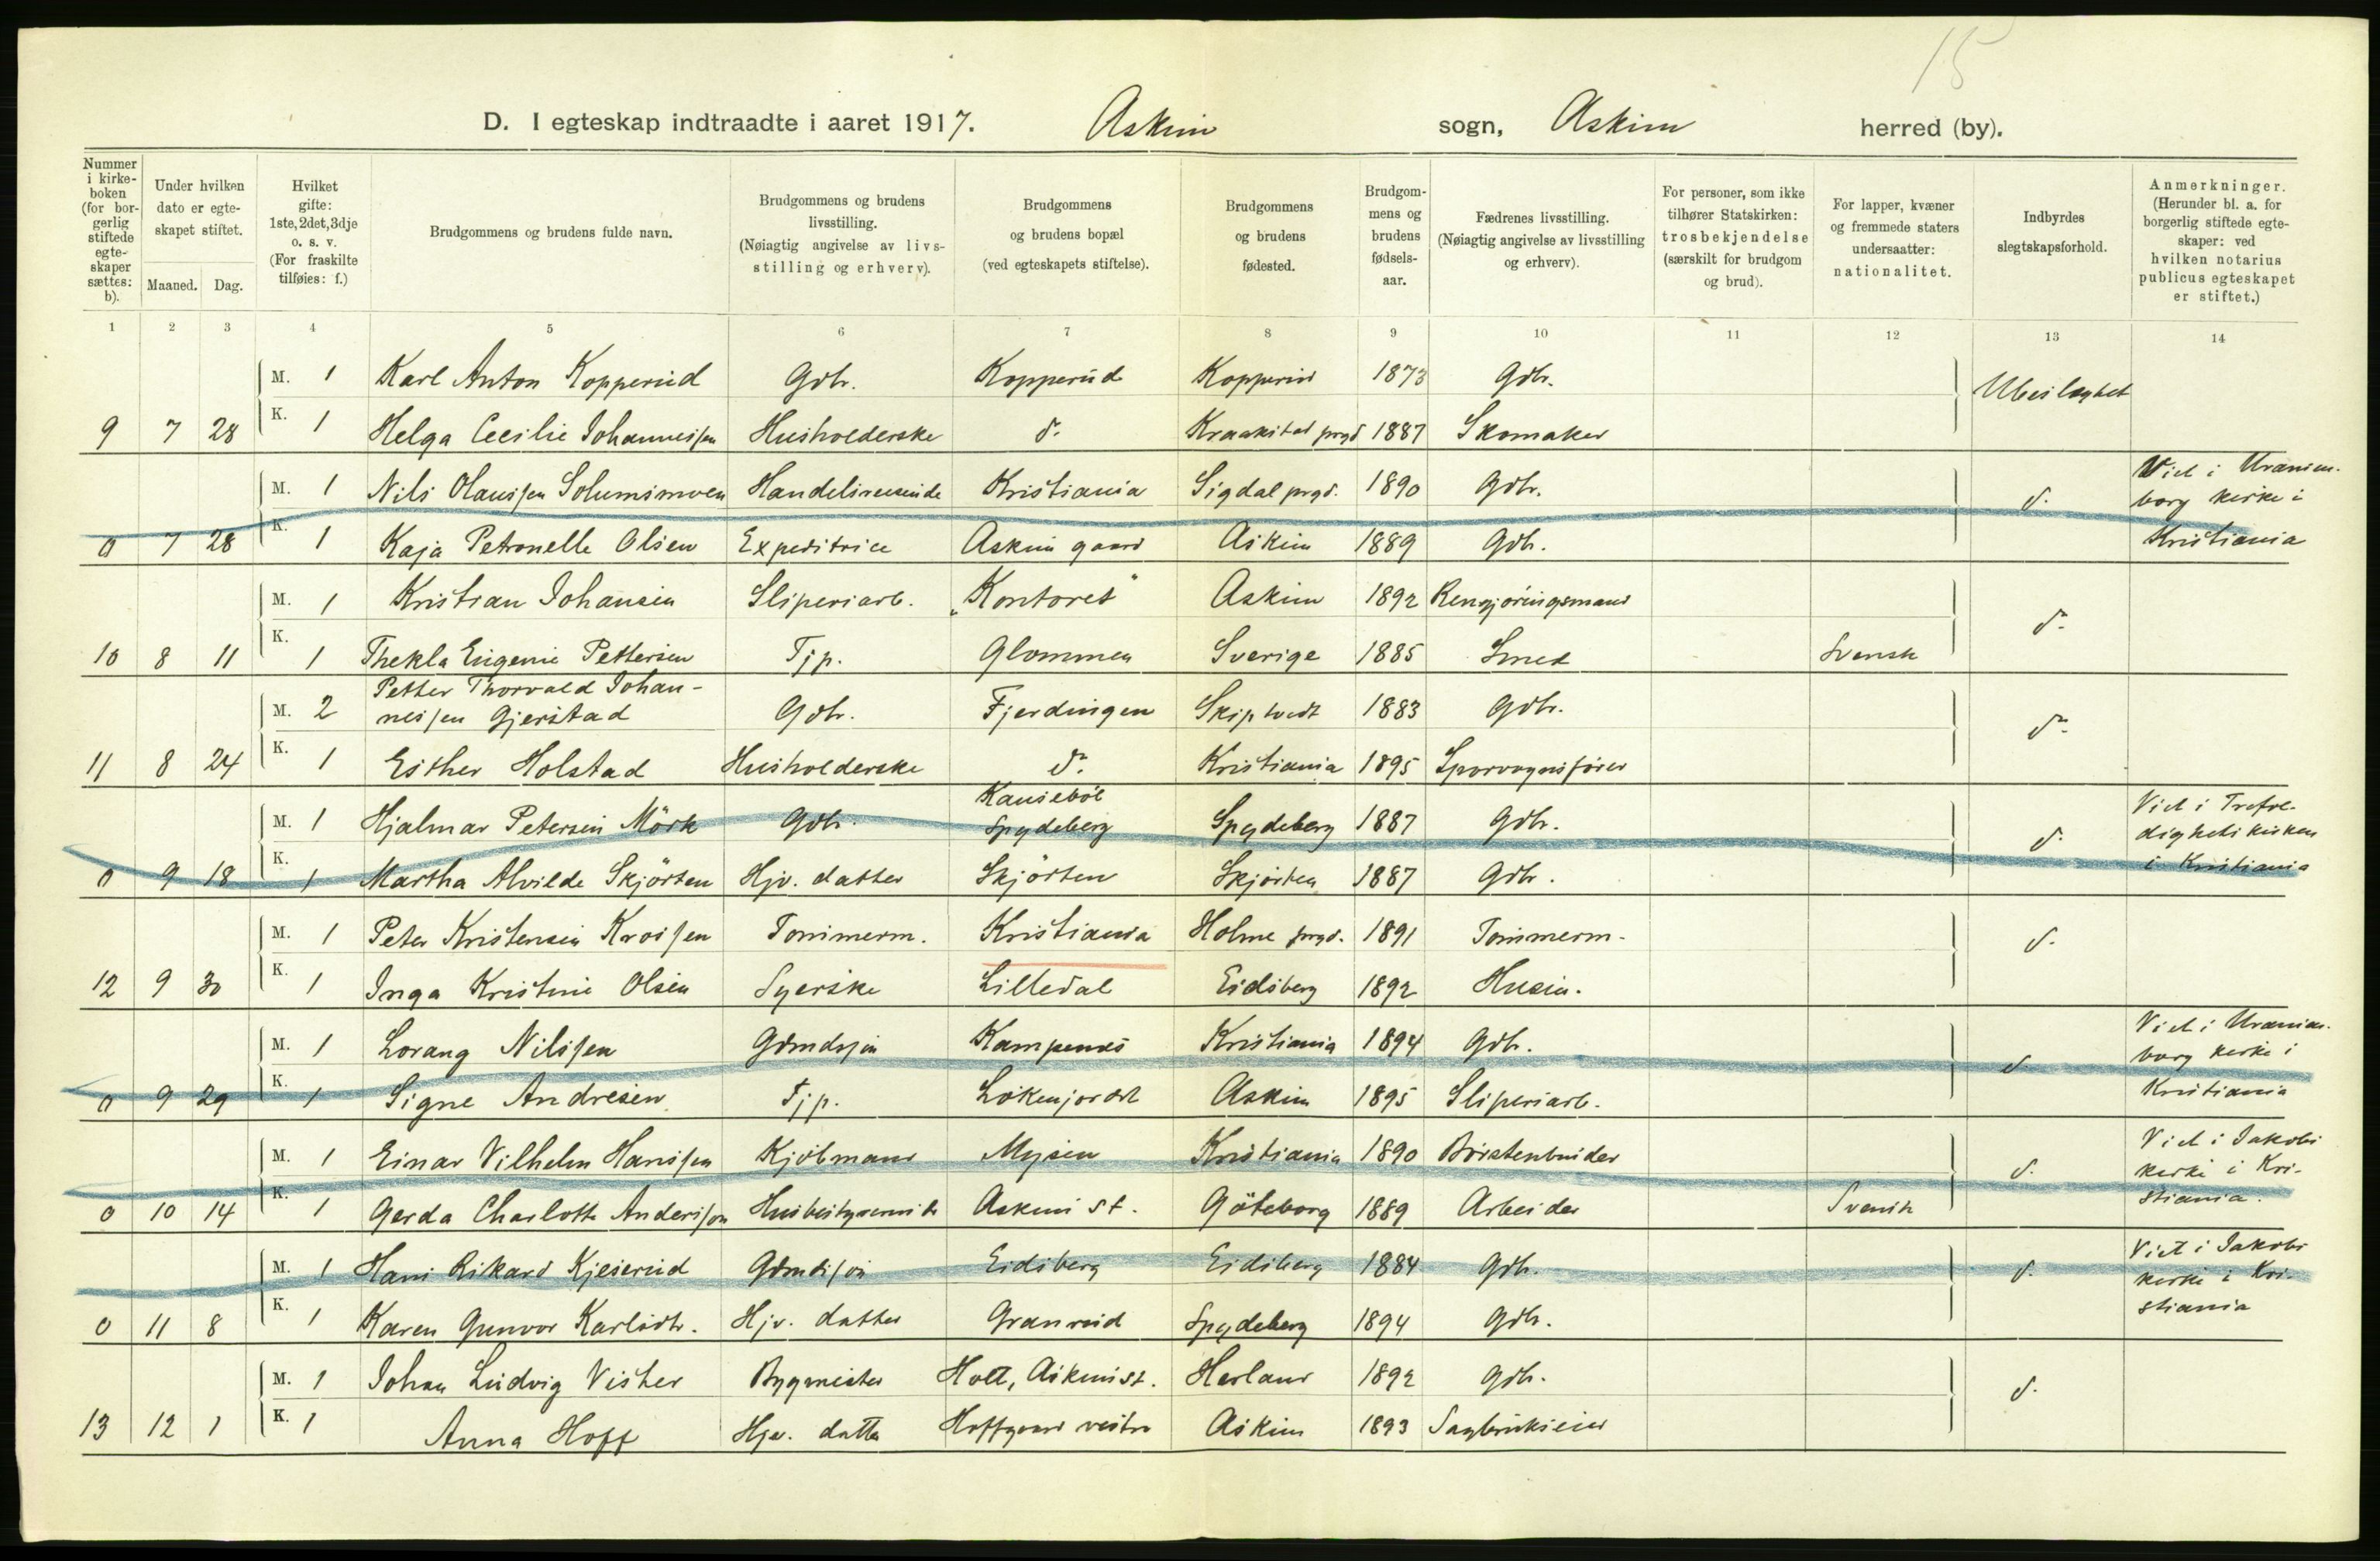 15
D. I egteskap indtraadte i aaret 1917. Askim sogn, Askim herred (by).
Nummer i kirke-boken (for bor-gerlig stiftede egte-skaper sættes: b).
Under hvilken dato er egte-skapet stiftet.
Maaned. Dag.
Hvilket gifte: 1ste, 2det, 3dje o. s. v. (For fraskilte tilføies: f.)
Brudgommens og brudens fulde navn.
Brudgommens og brudens livsstilling. (Nøiagtig angivelse av livs-stilling og erhverv).
Brudgommens og brudens bopæl (ved egteskapets stiftelse).
Brudgommens og brudens fødested.
Brudgom-mens og brudens fødsels-aar.
Fædrenes livsstilling. (Nøiagtig angivelse av livsstilling og erhverv).
For personer, som ikke tilhører Statskirken: trosbekjendelse (særskilt for brudgom og brud).
For lapper, kvæner og fremmede staters undersaatter: nationalitet.
Indbyrdes slegtskapsforhold.
Anmerkninger. (Herunder bl. a. for borgerlig stiftede egte-skaper: ved hvilken notarius publicus egteskapet er stiftet.)
1 2 3 4 5 6 7 8 9 10 11 12 13 14
M. 1 Karl Anton Kopperud Gdbr. Kopperud Kopperud 1873 Gdbr. Ubeslegtet
9 7 28 K. 1 Helga Cecilie Johannessen Husholderske do. prgd 1887 Skomaker
M. 1 Nils Olaussen Solumsmoen Handelsreisende Kristiania Sigdal prgd. 1890 Gdbr. d. Viet i Uranien-
borg kirke i
0 7 28 K. 1 Kaja Petronelle Olsen Expeditrice Askim gaard Askim 1889 Gdbr. Kristiania
M. 1 Kristian Johansen Sliperiarb. „Kontoret" Askim 1892 Rengjøringsmand d.
10 8 11 K. 1 Thekla Eugenie Pettersen Tjp. Glommen Sverige 1885 Smed Svensk
Petter Thorvald Johan-
M. 2 nessen Gjerstad Gdbr. Fjerdingen Skiptvedt 1883 Gdbr. d.
11 8 24 K. 1 Esther Holstad Husholderske d. Kristiania 1895 Sporvognsfører
M. 1 Hjalmar Petersen Mörk Gdbr. Spydeberg Spydeberg 1887 Gdbr. d. Viet i Trefol-
dighets kirken
0 9 18 K. 1 Martha Alvilde Skjörten Hjv. datter Skjörten Skjörten 1887 Gdbr. i Kristiania
M. 1 Peter Kristensen Tömmerm. Kristiania Holme prgd. 1891 Tömmerm. d.
12 9 30 K. 1 Inga Kristine Olsen Syerske Lilledal Eidsberg 1892 Husm.
M. 1 Lorang Nilssen Gdmdssøn Kampenes Kristiania 1894 Gdbr. d. Viet i Uranien-
borg kirke i
0 9 29 K. 1 Signe Andresen Tjp. Lökenjordet Askim 1895 Sliperiarb. Kristiania
M. 1 Einar Vilhelm Hanssen Kjöbmand Mysen Kristiania 1890 Börstenbinder d. Viet i Jakobs
kirke i Kri-
0 10 14 K. 1 Gerda Charlotte Andersson Husbestyrerinde Askim st. Göteborg 1889 Arbeider Svensk stiania.
M. 1 Hans Rikard Kjeserud Gdmdssøn Eidsberg Eidsberg 1884 Gdbr. d. Viet i Jakobs
kirke i Kri-
0 11 8 K. 1 Karen Gunvor Karlsdtr. Hjv. datter Granrud Spydeberg 1894 Gdbr. stiania
M. 1 Johan Ludvig Vister Bygmester Holt, Askim st. Herland 1892 Gdbr. d.
13 12 1 K. 1 Anna Hoff Hjv. datter Hoffgaard vestre Askim 1893 Sagbrukseier